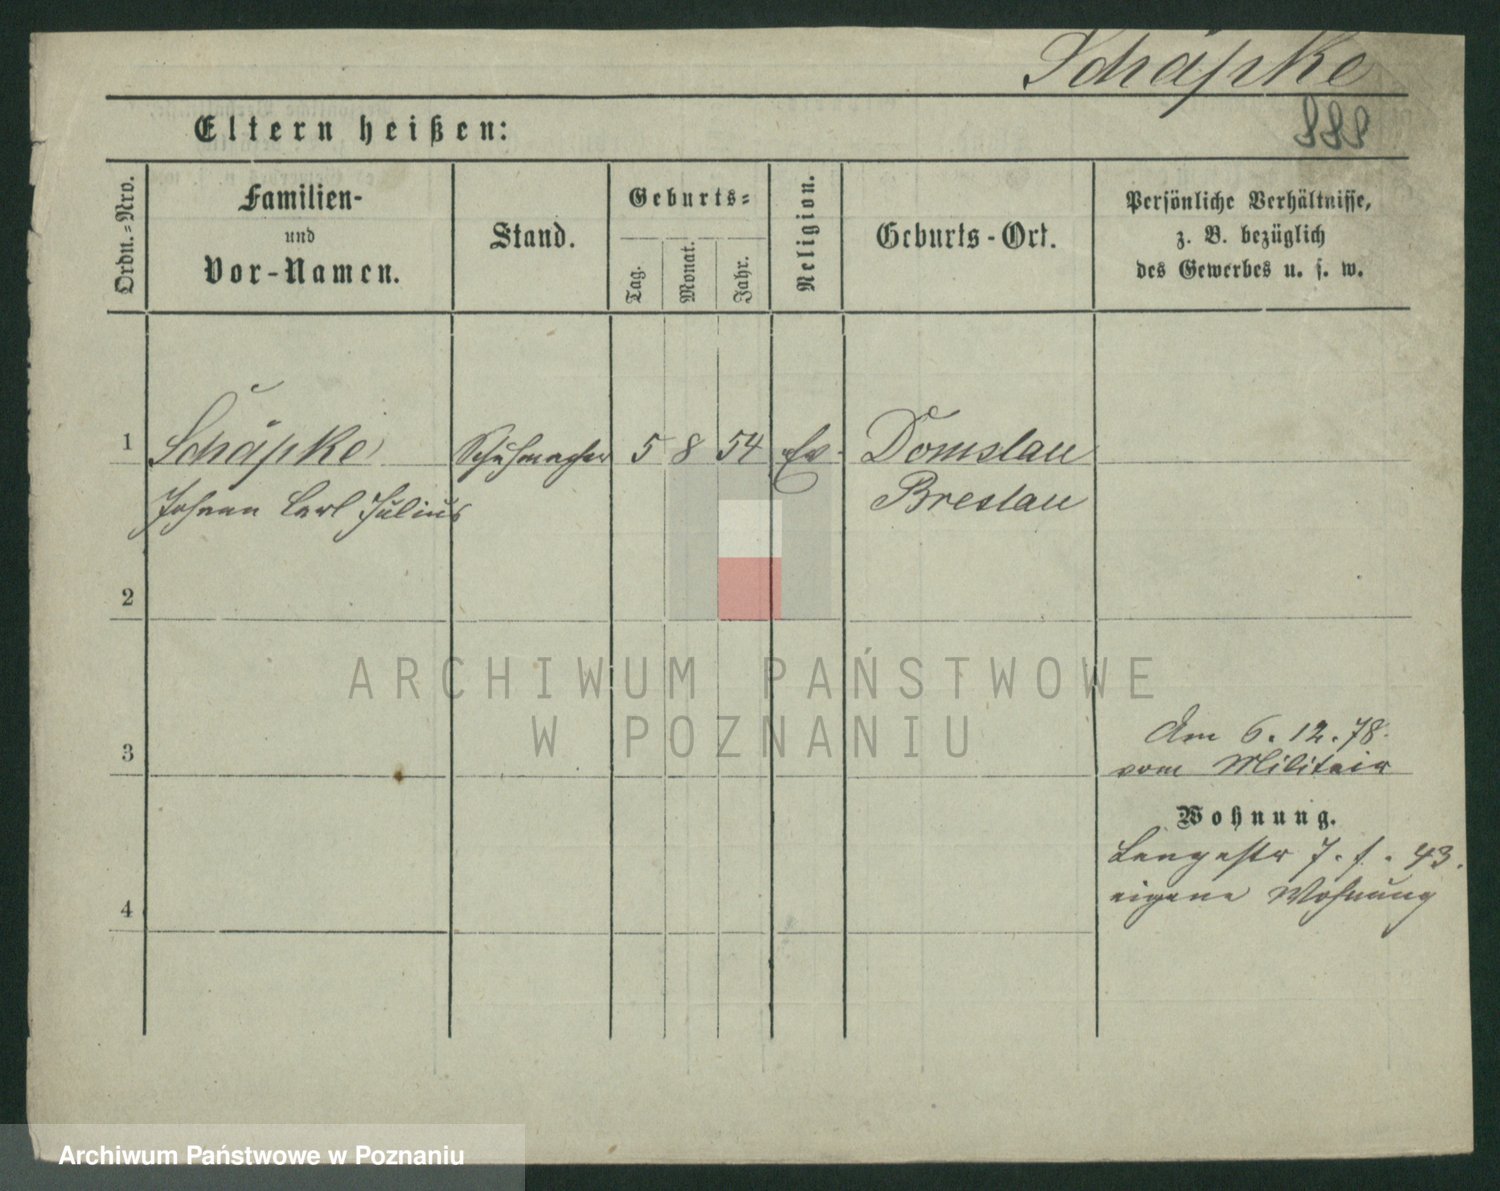 Schäpke
888
Eltern heißen:
Ordn.-Nro.
Familien-
und
Vor-Namen.
Stand.
Geburts-
Tag.
Monat.
Jahr.
Religion.
Geburts-Ort.
Persönliche Verhältnisse,
z. B. bezüglich
des Gewerbes u. s. w.
1 Schäpke Schuhmacher 5 8 54 Ev. Domslau
Johann Carl Julius Breslau
2
ARCHIWUM PAŃSTWOWE
W POZNANIU
3
Am 6. 12. 78.
vom Militair
Wohnung.
43.
eigene Wohnung
4
Archiwum Państwowe w Poznaniu